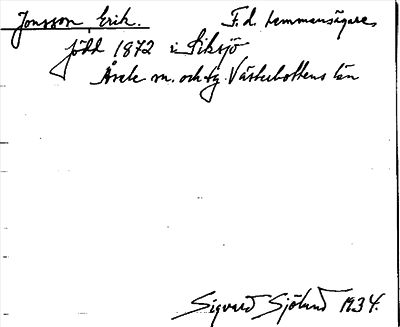 Jonsson, Erik. F.d. hemmansägare,
född 1872 i Siksjö
Åsele sn. och tg. Västerbottens län
Sigvard Sjölund 1934.